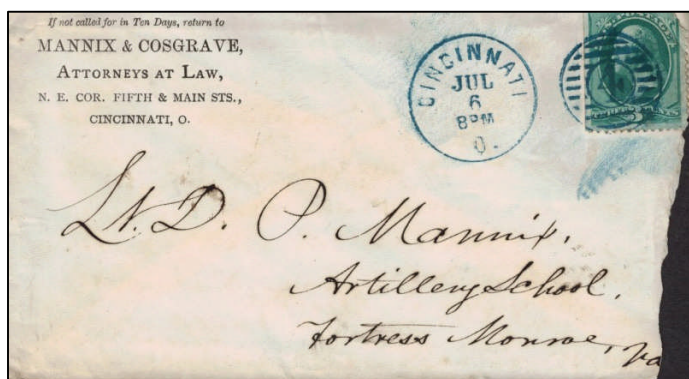 If not called for in Ten Days, return to
MANNIX & COSGRAVE,
ATTORNEYS AT LAW,
N. E. COR. FIFTH & MAIN STS.,
CINCINNATI, O.
CINCINNATI
JUL
6
8PM
O.
Lt. D. P. Mannix.
Artillery School.
Fortress Monroe, Va